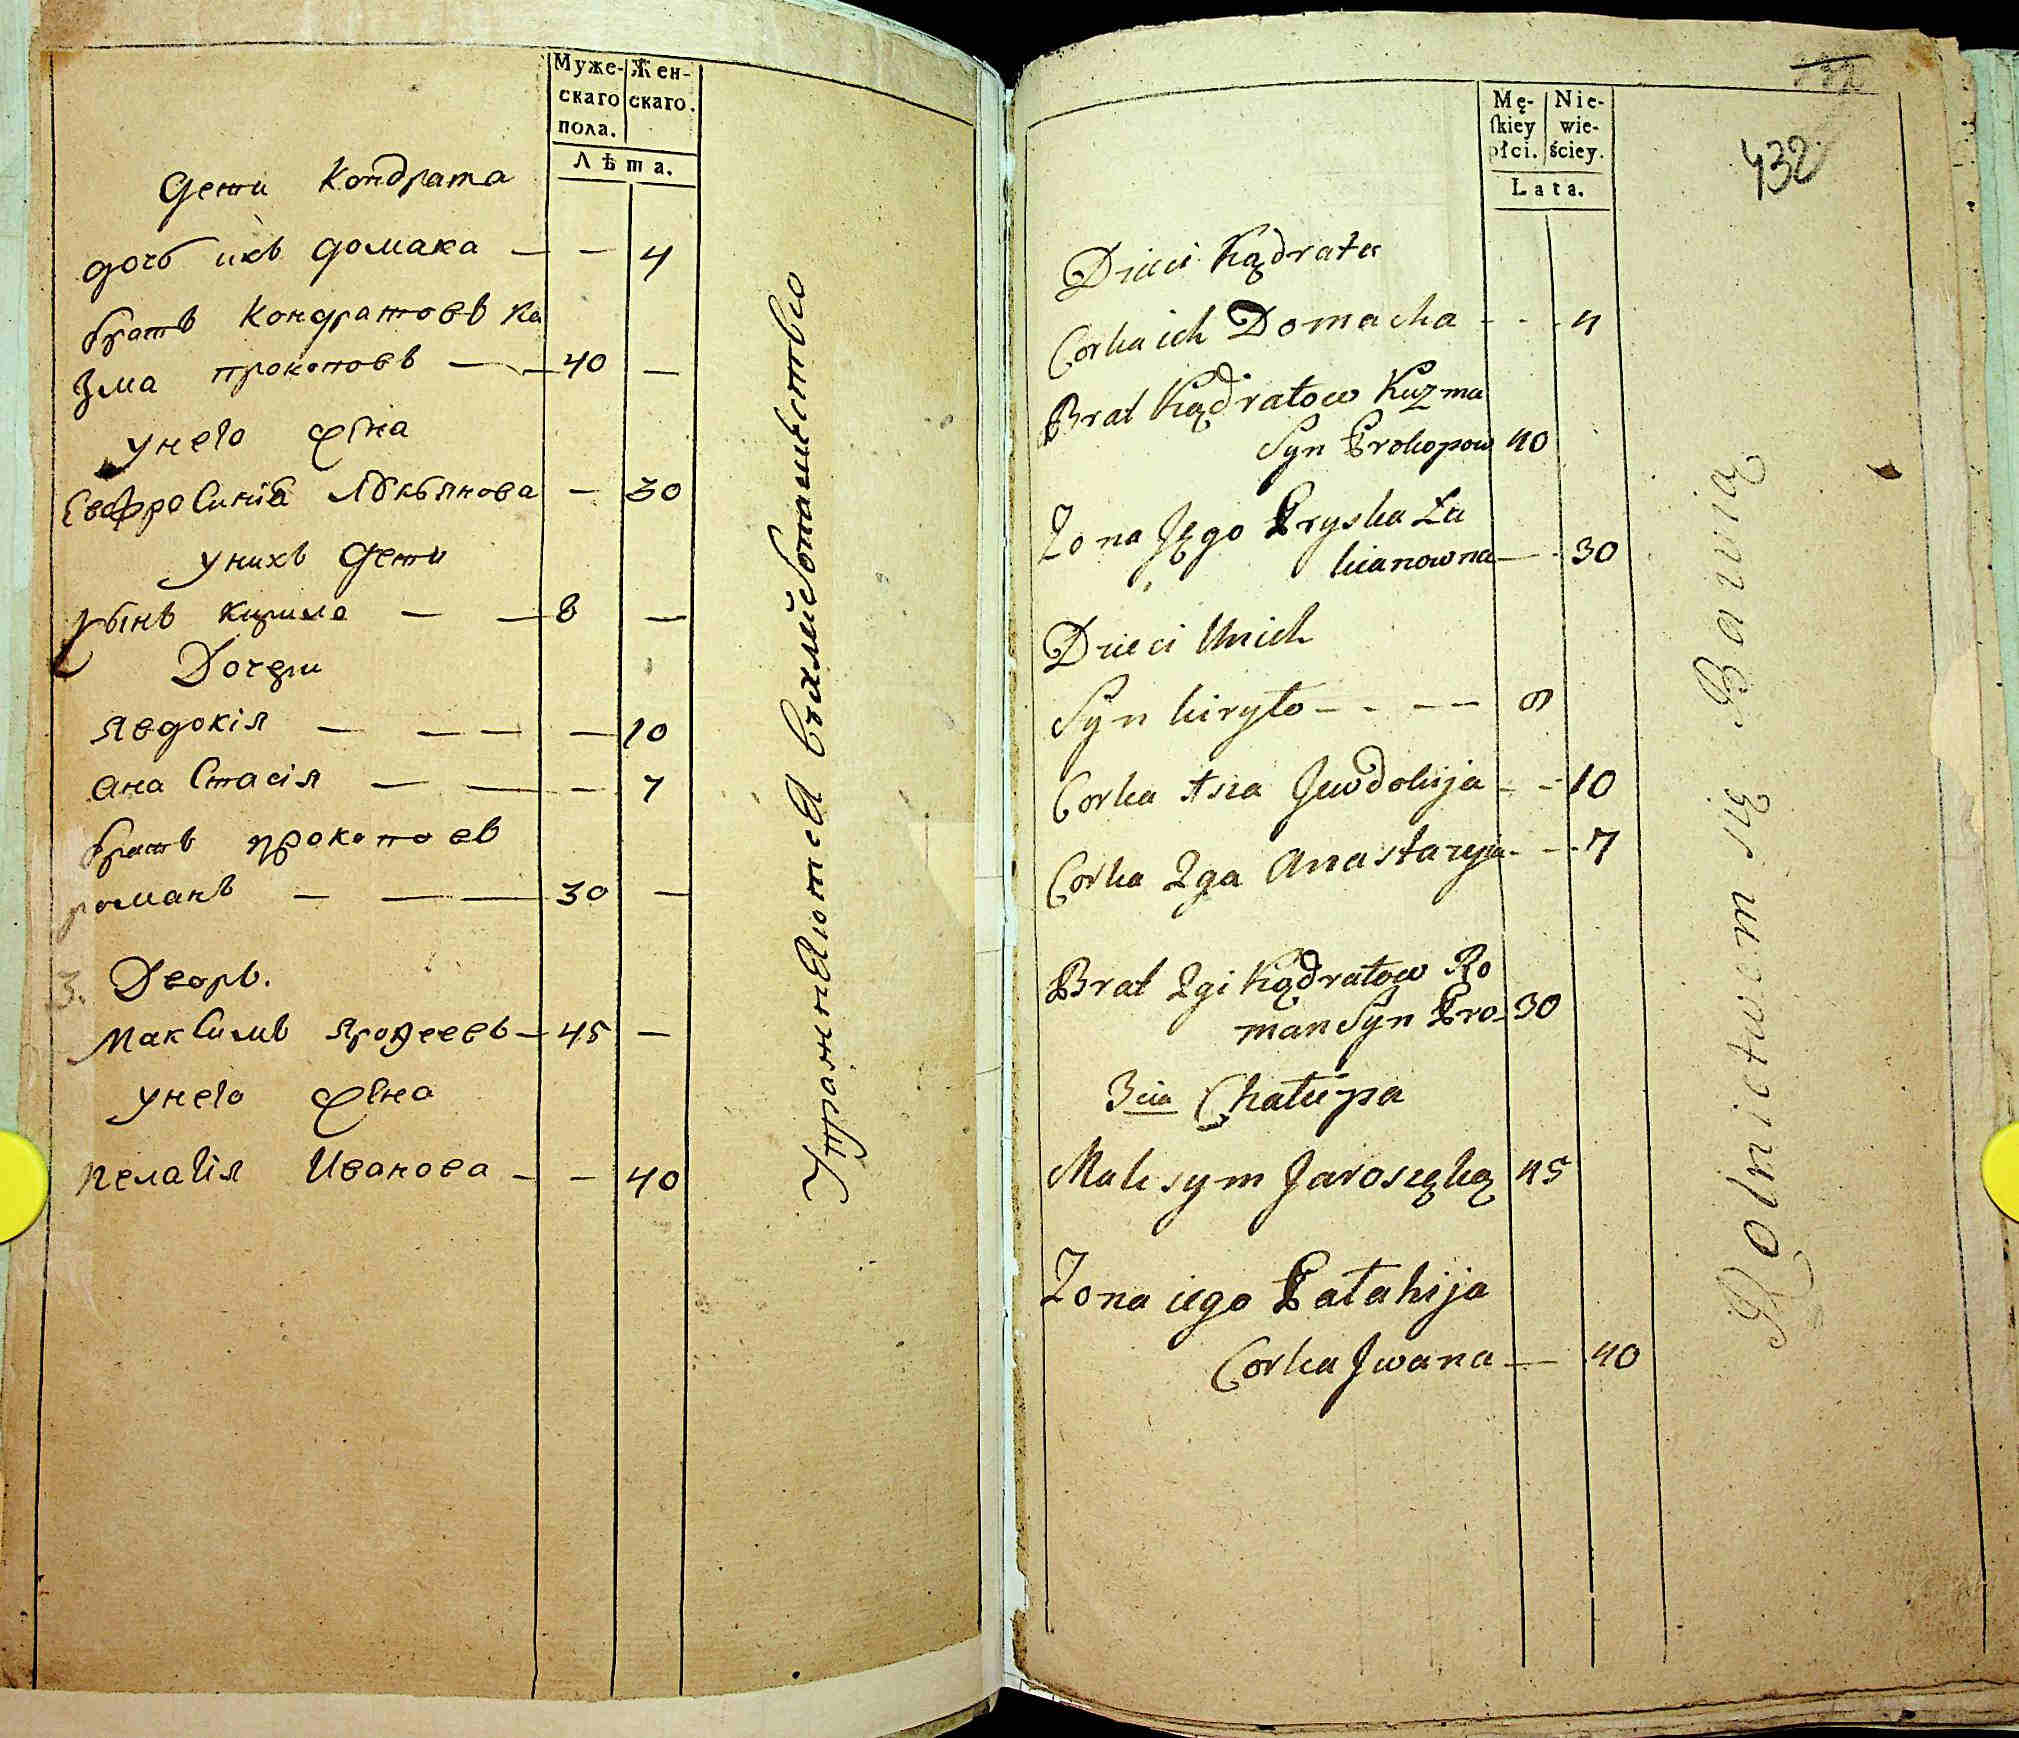 Муже- Жен-
скаго скаго.
пола.
Лѣта.
Дети Кондрата
дочь ихъ домаха — — 4
братъ Кондратовъ Ку
зма прокоповъ — — 40 —
унего жена
Евфросинія Лукьянова — 30
унихъ Дети
сынъ Кирило — — 8 —
Дочери
Явдокія — — — — 10
ана Стасія — — — 7
братъ прокопоев
романъ — — — 30 —
3. Дворъ.
Максимъ Ярофеевъ — 45 —
унего жена
пелагия Иванова — — 40
Упражняются въхлебопашество
Mę- Nie-
skiey wie-
płci. ściey.
Lata.
432
Dzieci Kądrata
Corka ich Domacha - - - 4
Brat Kądratow Kuzma
Syn Prokopow 40
Zona Jego Pryska Łu
kianowna — 30
Dzieci Unich
Syn kiryło - - — — 8
Corka 1sza Jewdokija - - 10
Corka 2ga Anastazyia - - 7
Brat 2gi Kądratow Ro
man Syn Pro- 30
3cia Chałupa
Maksym Jaroszęko 45
Zona iego Pałahija
Corka Jwana — 40
Rolnictwem się Bawią